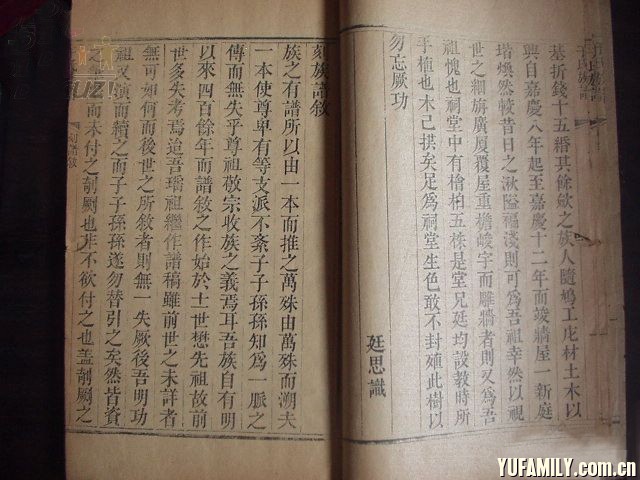 于氏族譜
墓折錢十五緡其餘斂之族人隨鳩工庀材土木以
興自嘉慶八年起至嘉慶十二年而竣牆屋一新庭
堦煥然較昔日之湫隘褊淺則可為吾祖幸然以視
世之細旃廣厦覆屋重檐峻宇而雕牆者則又為吾
祖愧也祠堂中有檜柏五株是堂兄廷均設教時所
手植也木已拱矣足為祠堂生色敢不封殖此樹以
勿忘厥功
廷思識
刻族譜敘
族之有譜所以由一本而推之萬殊由萬殊而溯夫
一本使尊卑有等支派不紊子子孫孫知為一脈之
傳而無失乎尊祖敬宗收族之義焉耳吾族自有明
以來四百餘年而譜敘之作始於十世懋先祖故前
世多失考焉迨吾璠祖繼作譜稿雖前世之未詳者
無可如何而後世之所敘者則無一失厥後吾明功
祖又演而續之而子子孫孫遂勿替引之矣然皆資
之而未付之剞劂也非不欲付之也蓋剞劂之
刻譜敘
YUFAMILY.com.cn